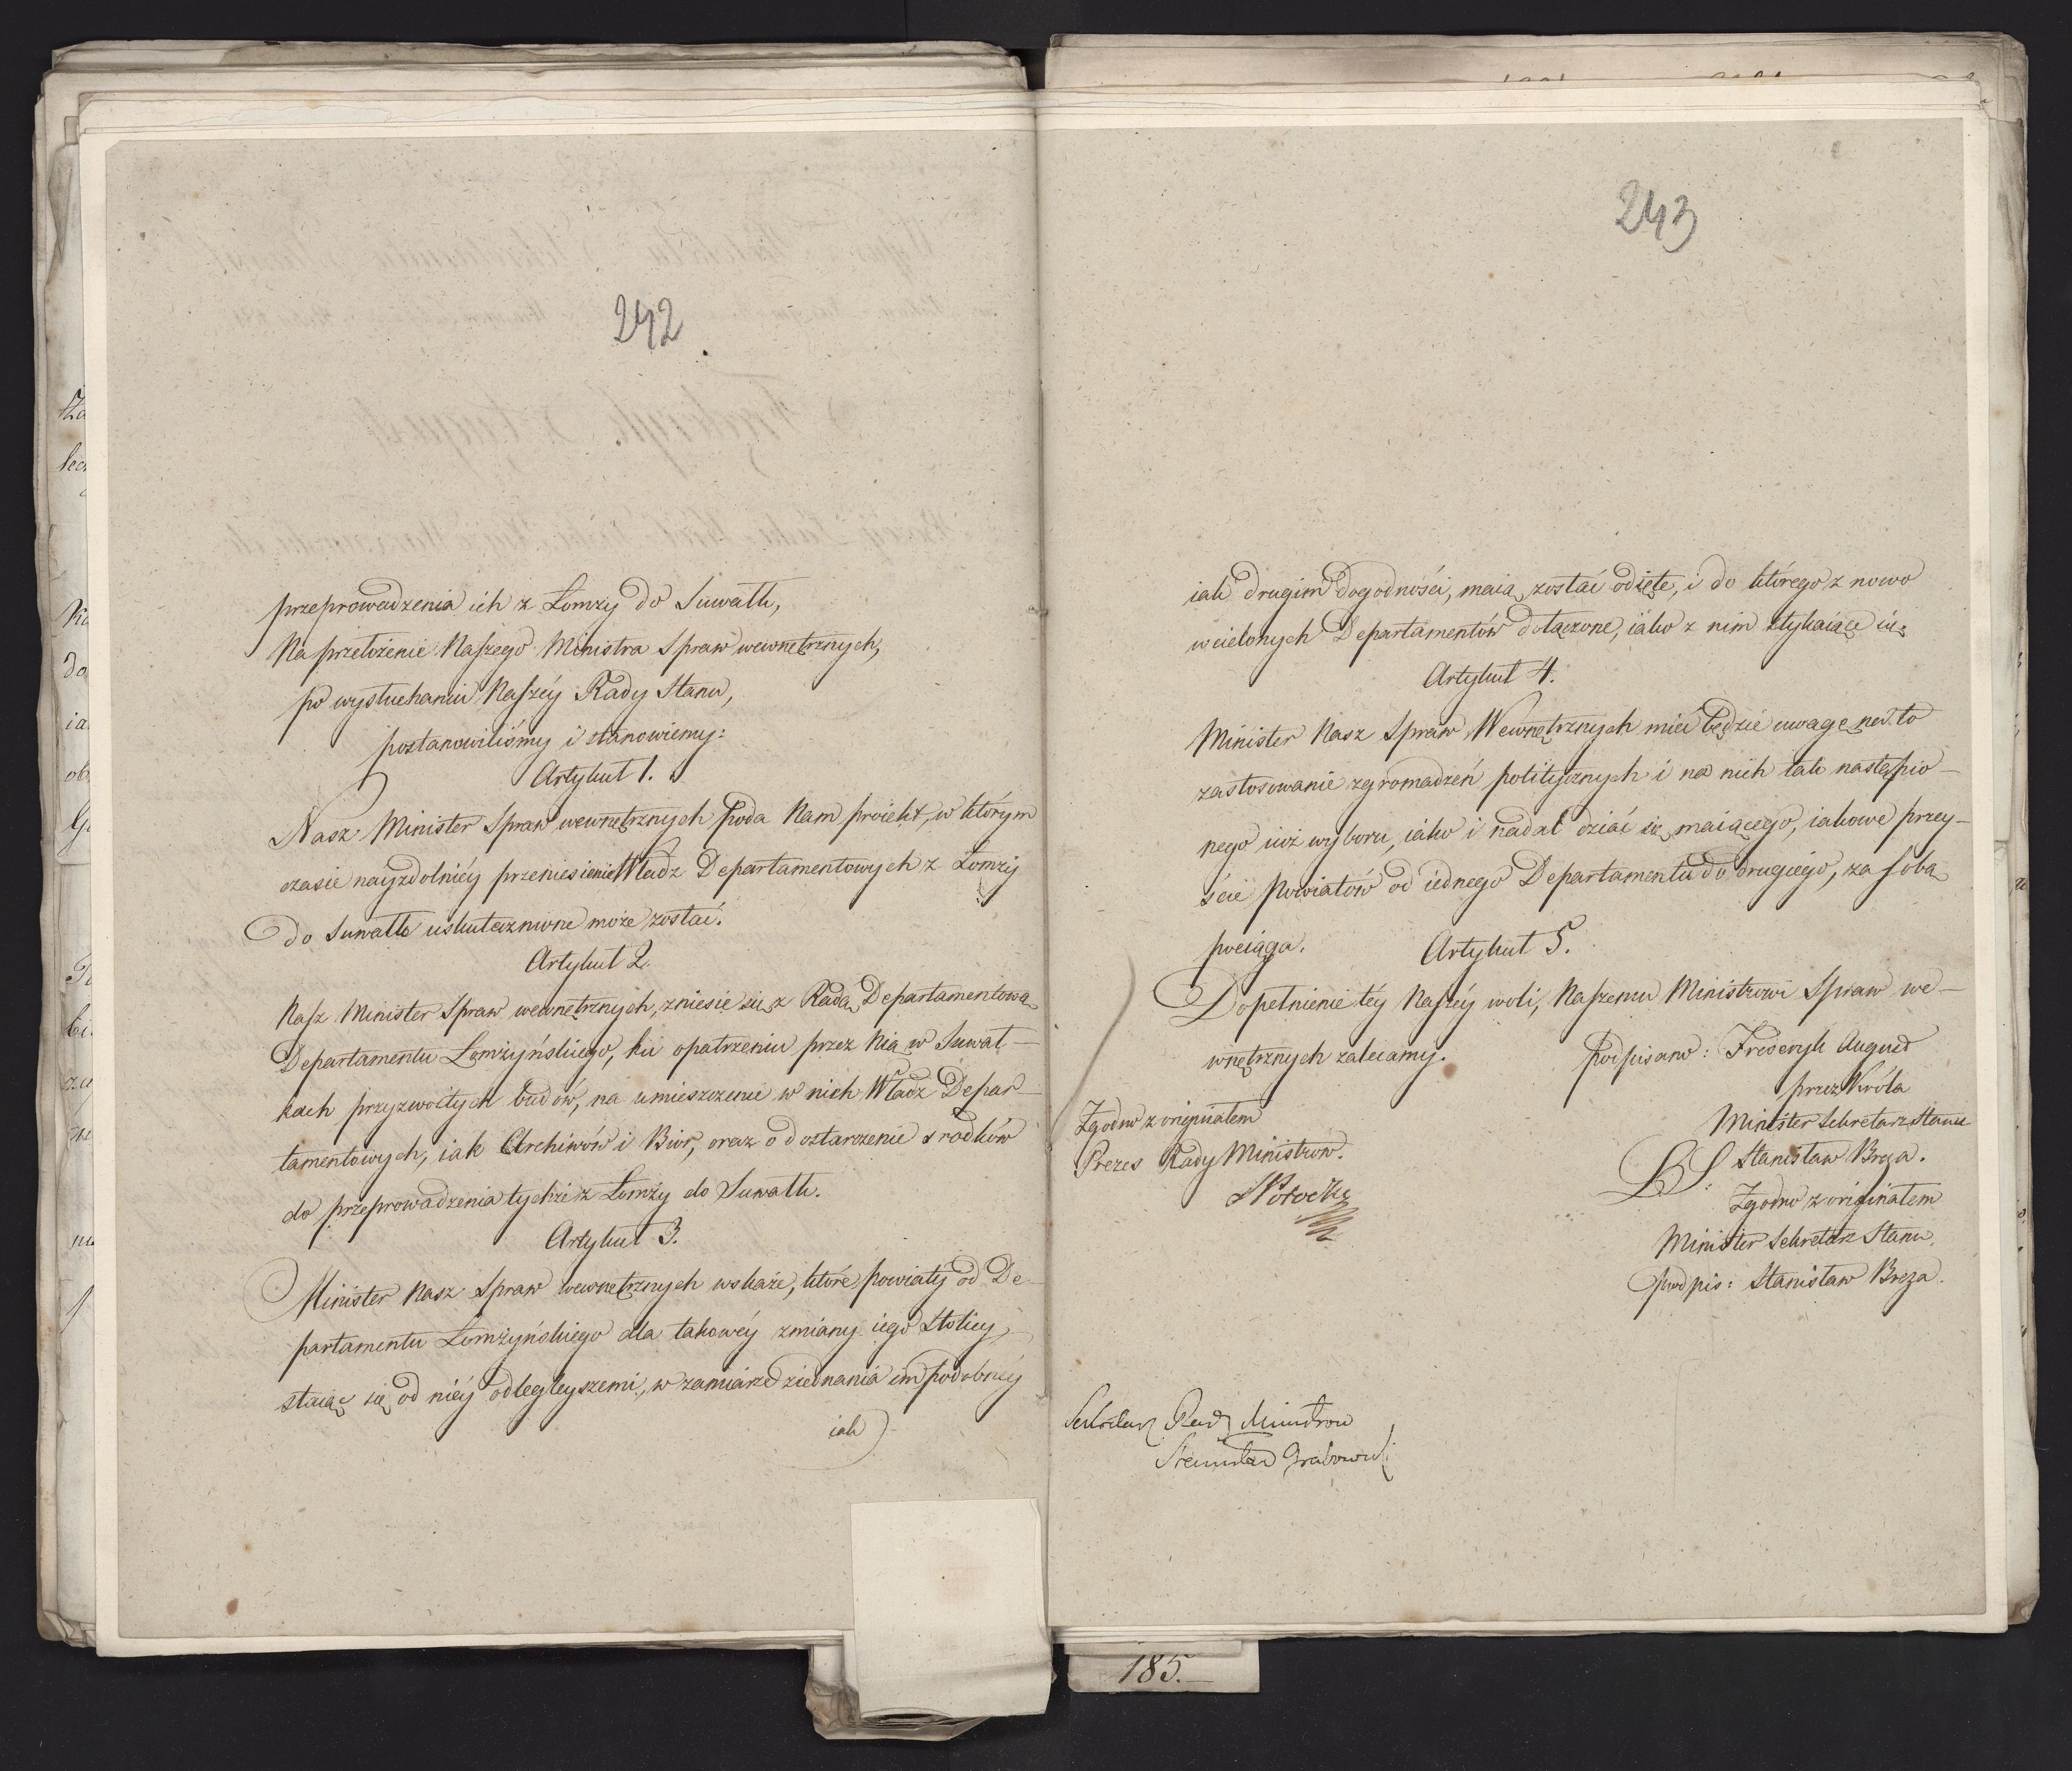 242
przeprowadzenia ich z Łomży do Suwałk,
Na przełożenie Naszego Ministra Spraw wewnętrznych,
po wysłuchaniu Naszéy Rady Stanu,
postanowiliśmy i stanowiemy:
Artykuł 1.
Nasz Minister Spraw wewnętrznych poda Nam proiekt, w którym
czasie nayzdolniéy przeniesienie Władz Departamentowych z Łomży
do Suwałk uskutecznione może zostać.
Artykuł 2.
Nasz Minister Spraw wewnętrznych, zniesie się z Radą Departamentową
Departamentu Łomżyńskiego, ku opatrzeniu przez Nią w Suwał-
kach przyzwoitych budów, na umieszczenie w nich Władz Depar-
tamentowych, iak Archiwów i Biór, oraz o dostarczenie srodków
do przeprowadzenia tychże z Łomży do Suwałk.
Artykuł 3.
Minister Nasz Spraw wewnętrznych wskaże, które powiaty od De-
partamentu Łomżyńskiego dla takowéy zmiany iego Stolicy,
staiąc się od niéy odległeyszemi, w zamiarze ziednania im podobnéy
iak
243
iak drugim dogodności, maią zostać odięte, i do którego z nowo
wcielonych Departamentów dołączone, iako z nim stykaiące się.
Artykuł 4.
Minister Nasz Spraw Wewnętrznych mieć będzie uwagę na to
zastosowanie zgromadzeń politycznych i na nich tak nastąpio-
nego iuż wyboru, iako i nadal dziać się maiącego, iakowe przey-
ście powiatów od iednego Departamentu do drugiego, za sobą
pociąga.
Artykuł 5.
Dopełnienie téy Naszéy woli, Naszemu Ministrowi Spraw we-
wnętrznych zalecamy.
podpisano: Frederyk August
przez Króla
Minister Sekretarz Stanu
LS: Stanisław Breza.
Zgodno z originałem
Minister Sekretarz Stanu
podpis: Stanisław Breza.
Zgodno z originałem
Prezes Rady Ministrów.
S Potocki
Sekretarz Rady Ministrow
Stanisław Grabowski
185.